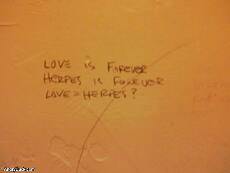 LOVE is FOREVER
HERPES is FOREVER
LOVE = HERPES?